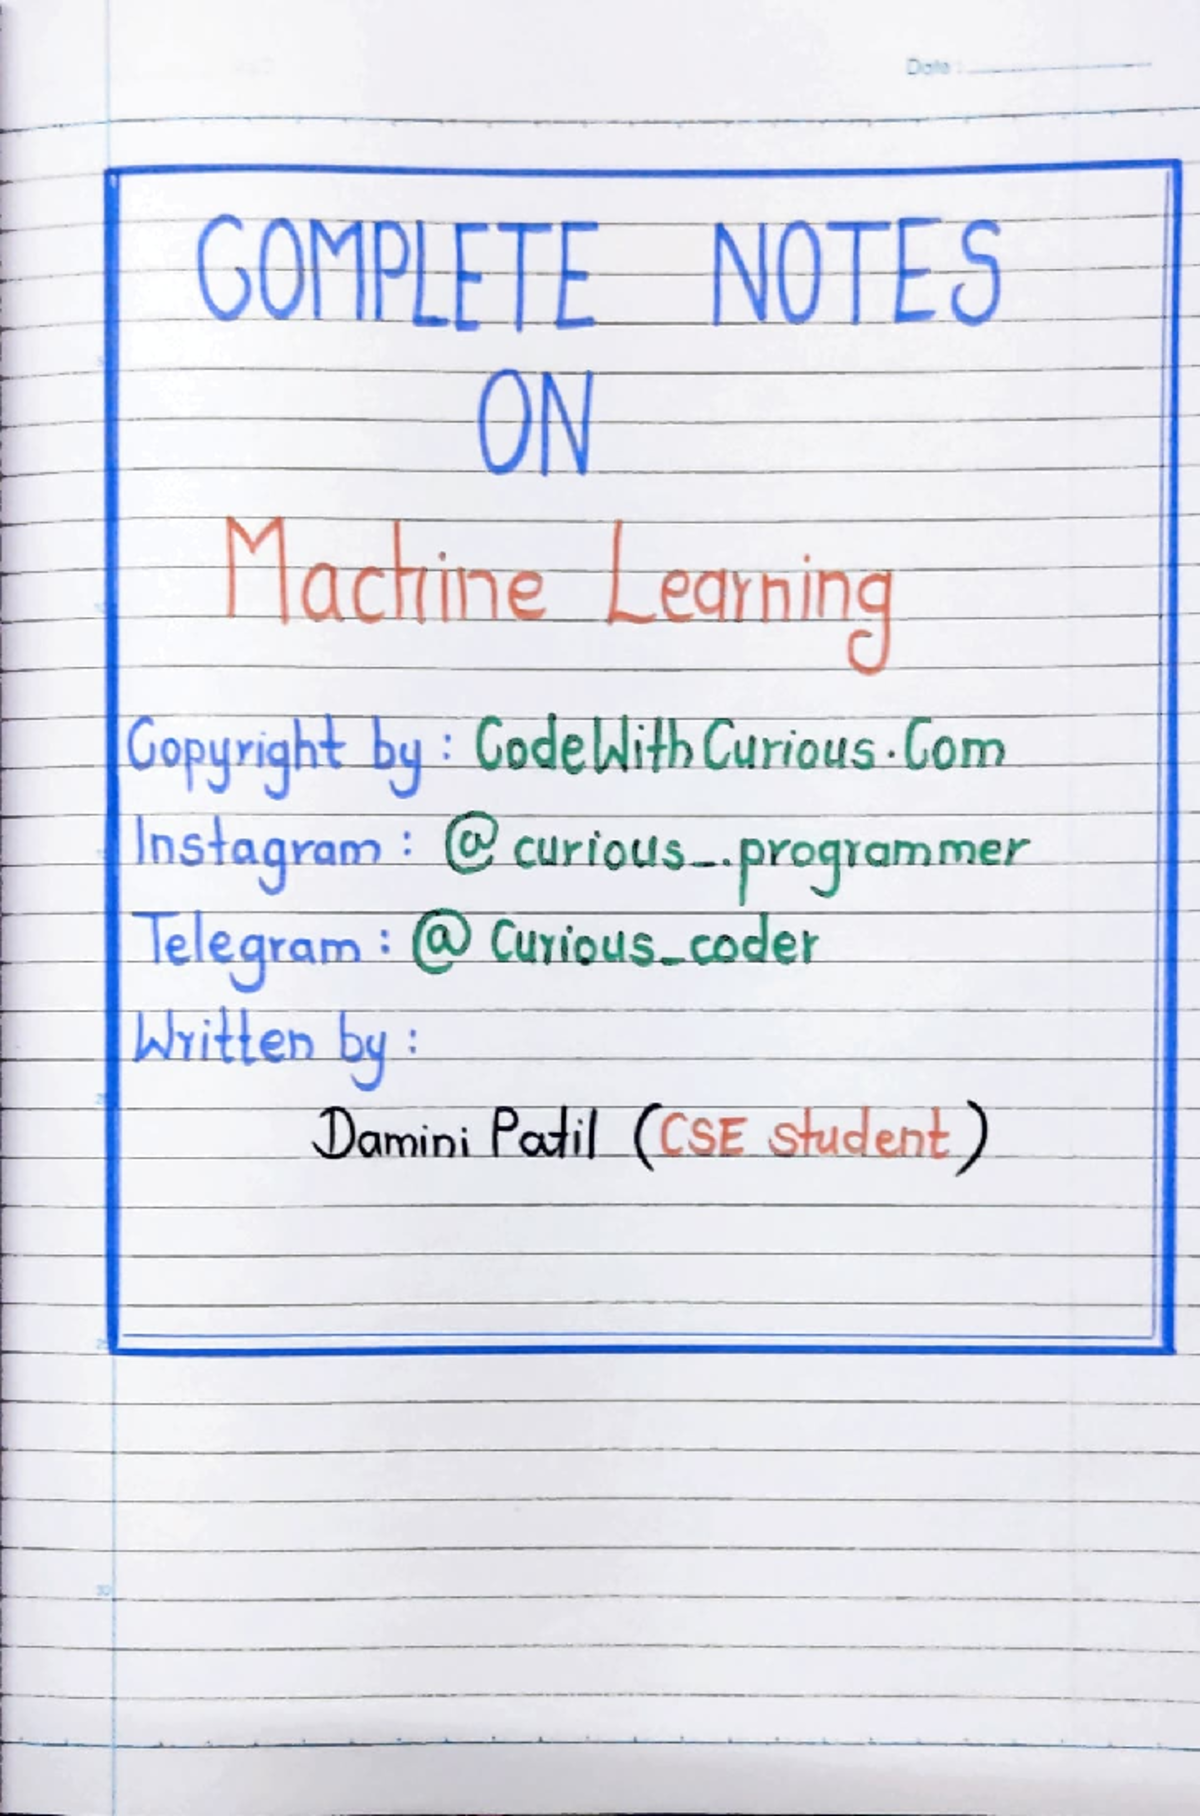 Date :
COMPLETE NOTES
ON
Machine Learning
Copyright by : CodeWithCurious.Com
Instagram : @ curious_.programmer
Telegram : @ Curious_coder
Written by :
Damini Patil (CSE student)